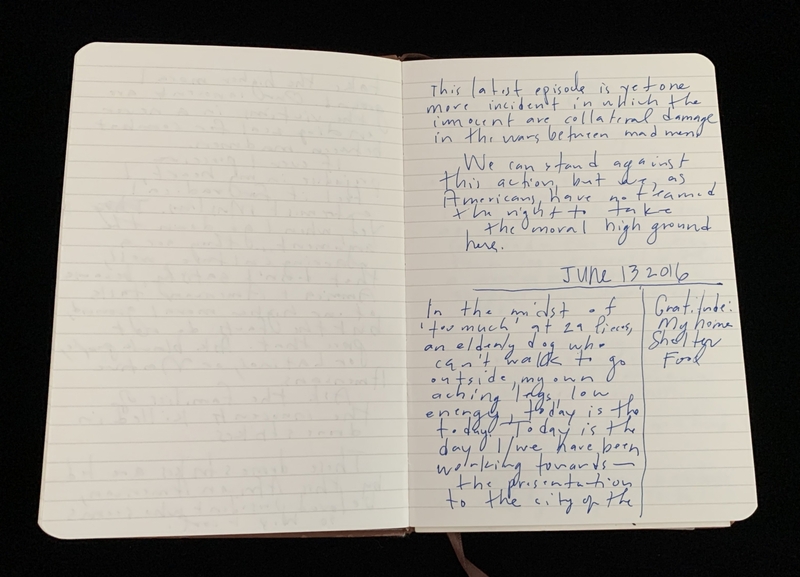 This latest episode is yet one
more incident in which the
innocent are collateral damage
in the wars between mad men.
We can stand against
this action, but we, as
Americans, have not earned
the right to take
the moral high ground
here.
June 13 2016
In the midst of
'too much' at 29 Pieces,
an elderly dog who
can't walk to go
outside, my own
aching legs, low
energy, today is the
today. Today is the
day I/we have been
working towards—
the presentation
to the city of the
Gratitude:
My home
Shelter
Food